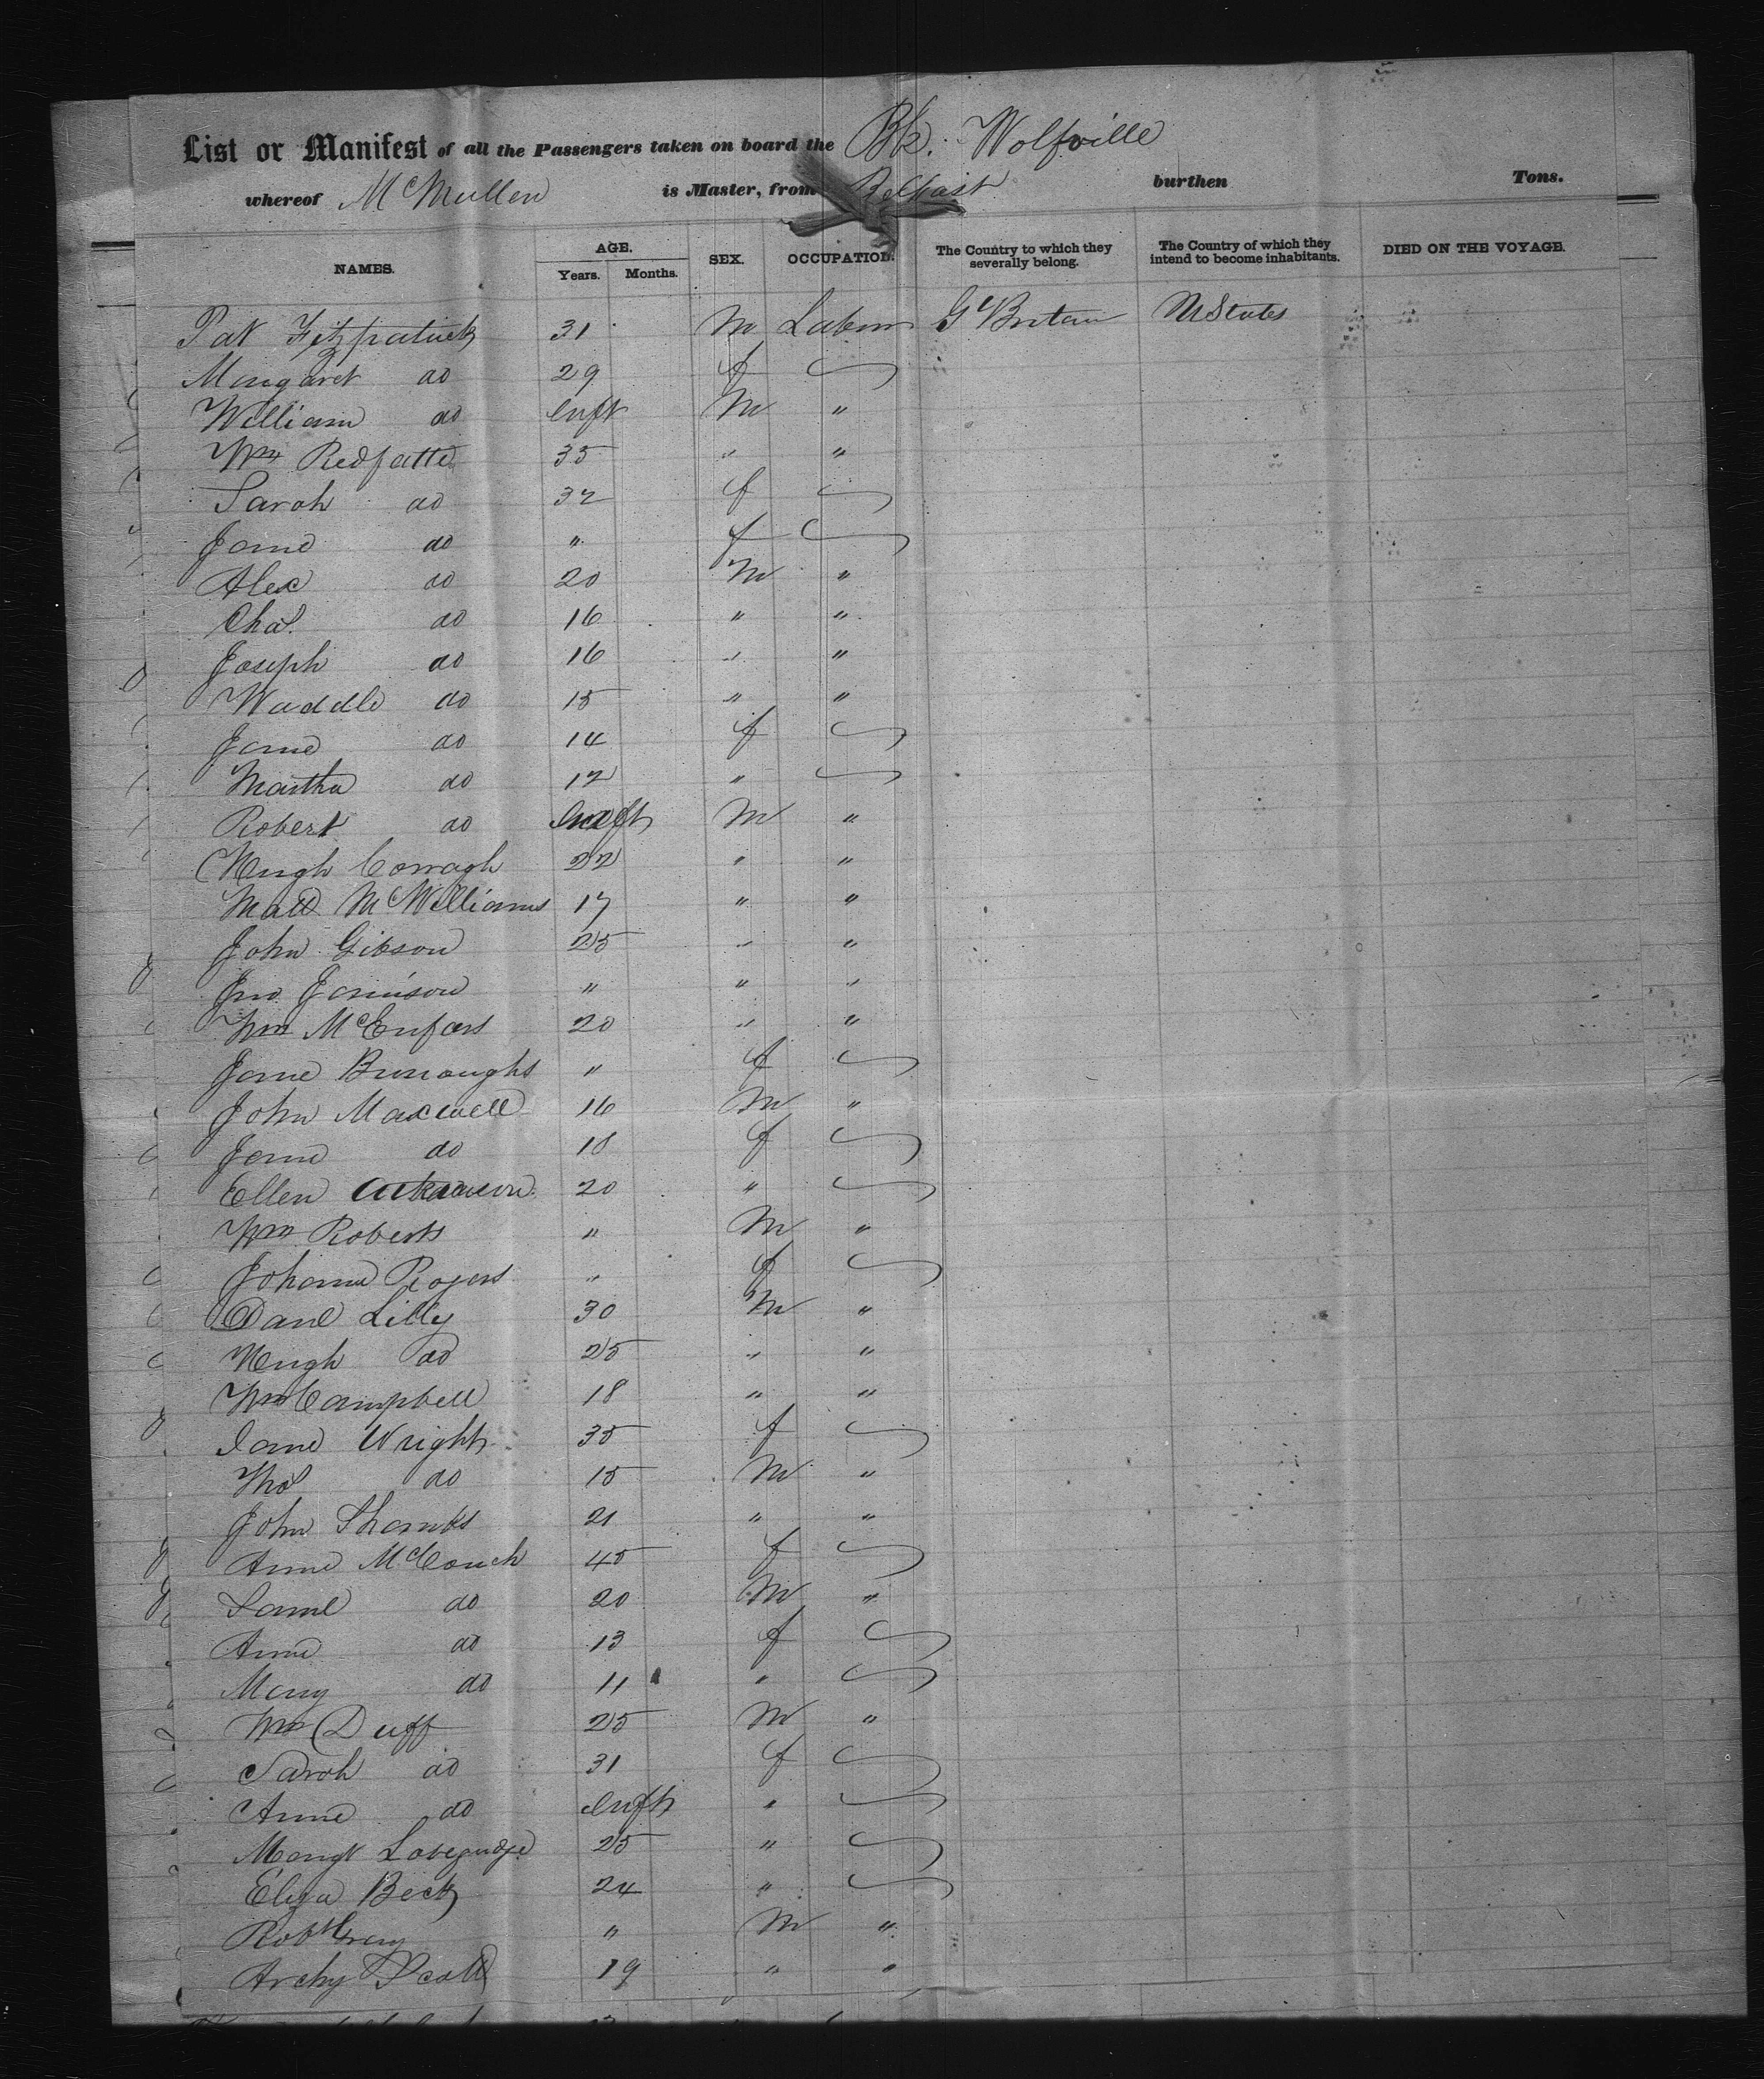 List or Manifest of all the Passengers taken on board the Bk. Wolfville
whereof McMullen is Master, from Belfast burthen Tons.
NAMES. AGE. Years. Months. SEX. OCCUPATION. The Country to which they severally belong. The Country of which they intend to become inhabitants. DIED ON THE VOYAGE.
Pat Fitzpatrick 31 M Labour Gt Britain U States
Margaret do 29 f
William do Inft M "
Wm 35 " "
Sarah do 32 f
Jane do " f
Alex do 20 M "
Chas. do 16 " "
Joseph do 16 " "
Waddle do 15 " "
Jane do 14 f
Martha do 12 "
Robert do Inft M "
Hugh Corragh 22 " "
Matt McWilliams 17 " "
John Gibson 25 " "
Jno Jamison " " "
Wm 20 " "
Jane Burroughs " f
John Maxwell 16 M "
Jane do 18 f
Ellen 20 "
Wm Roberts " M "
Johanna Rogers " f
Danl Lilly 30 M "
Hugh do 25 " "
Wm Campbell 18 " "
Jane Wright 35 f
Thos do 15 M "
John Shanks 21 " "
Anne McCouch 45 f
Saml do 20 M "
Anne do 13 f
Mary do 11 "
Wm Duff 25 M "
Sarah do 31 f
Anne do Inft "
Margt 25 "
Eliza Beck 24 "
Robt Gray " M "
Archy Scott 19 " "